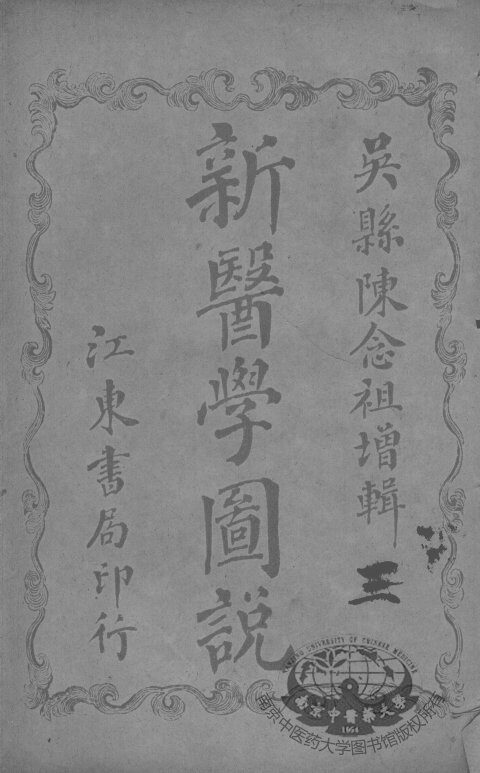 吳縣陳念祖增輯
三
新醫學圖說
江東書局印行
NANJING UNIVERSITY OF CHINESE MEDICINE
南京中醫藥大學
1954
南京中医药大学图书馆版权所有